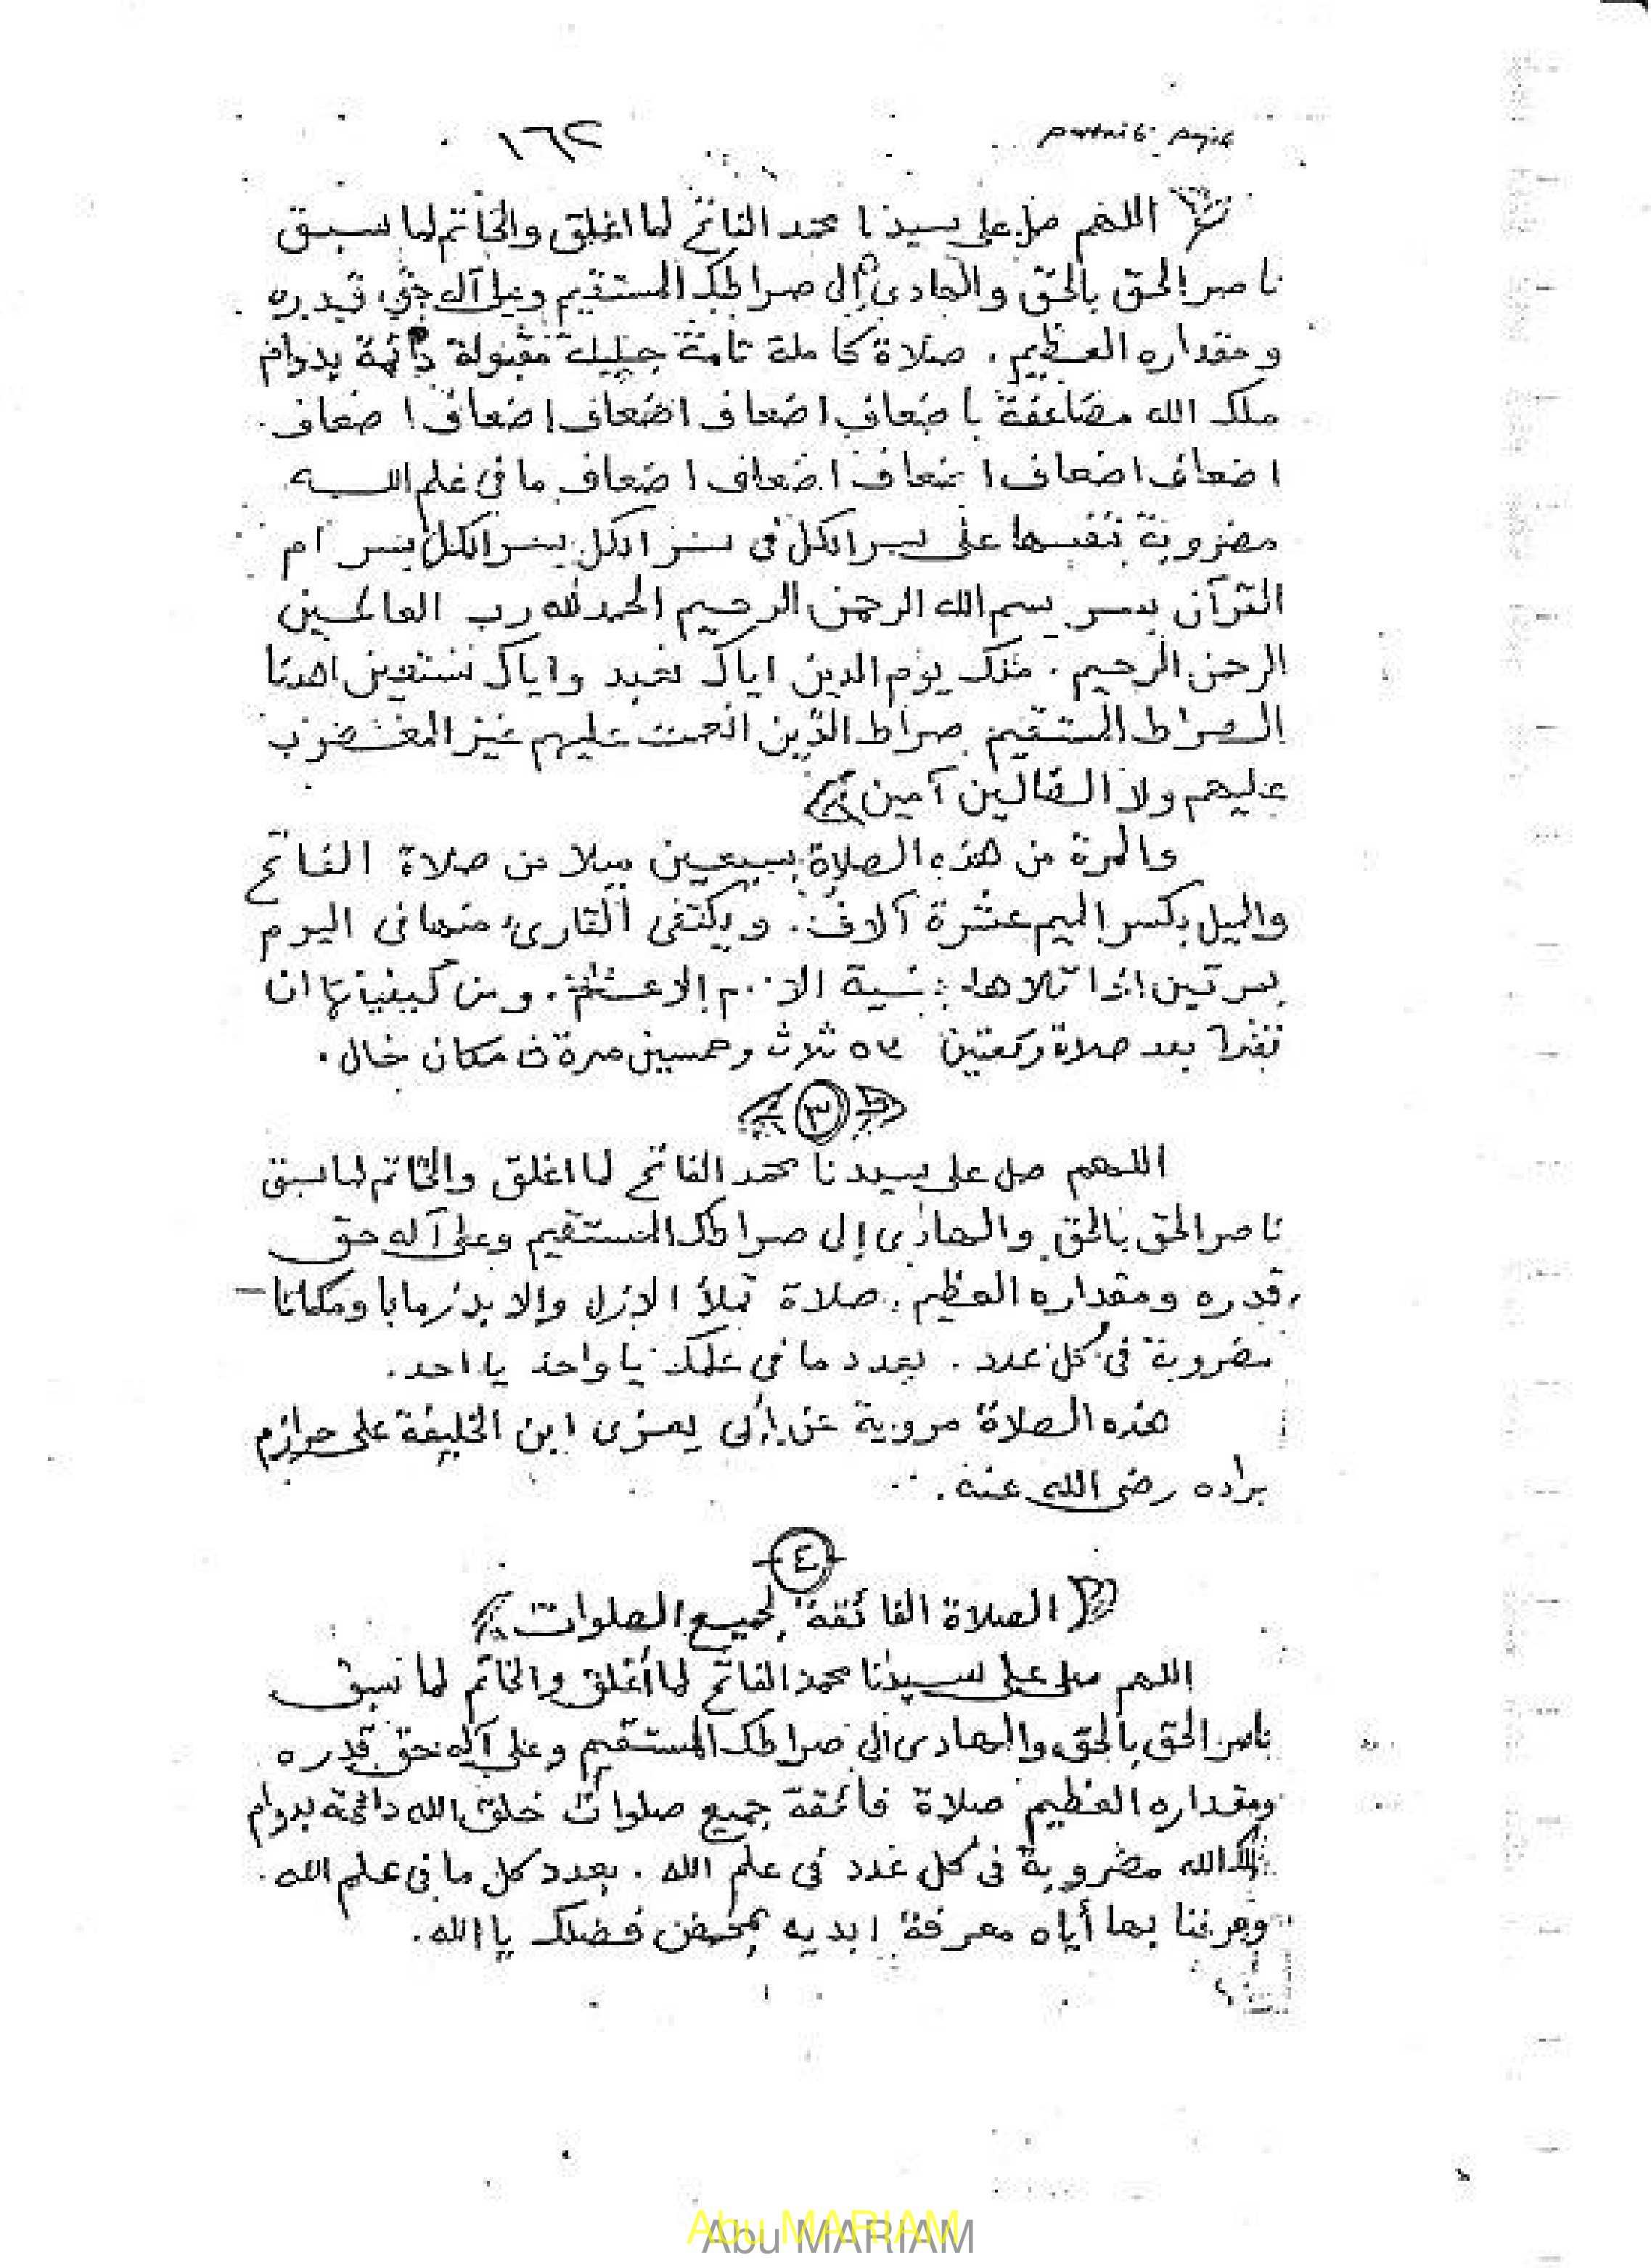 ١٦٢
اللهم صل على سيدنا محمد الفاتح لما اغلق والخاتم لما سبق
ناصر الحق بالحق والهادى إلى صراطك المستقيم وعلى آله حق قدره
ومقداره العظيم . صلاة كاملة تامة جليلة مقبولة دائمة بدوام
ملك الله مضاعفة باضعاف اضعاف اضعاف اضعاف اضعاف .
اضعاف اضعاف اضعاف اضعاف اضعاف ما فى علم الله
مضروبة بنفسها على سر الكل فى سر الكل بسر الكل بسر أم
القرآن بسر بسم الله الرحمن الرحيم الحمد لله رب العالمين
الرحمن الرحيم . ملك يوم الدين اياك نعبد واياك نستعين اهدنا
الصراط المستقيم صراط الذين انعمت عليهم غير المغضوب
عليهم ولا الضالين آمين
والمرة من هذه الصلاة بسبعين ميلا من صلاة الفاتح
والميل بكسر الميم عشرة آلاف . ويكتفى القارئ منها فى اليوم
بمرتين اذا تلاها بنية الا..م الاعظم . ومن كيفياتها ان
تقرأ بعد صلاة ركعتين ٥٣ ثلاث وخمسين مرة فى مكان خال .
٣
اللهم صل على سيدنا محمد الفاتح لما اغلق والخاتم لما سبق
ناصر الحق بالحق والهادى إلى صراطك المستقيم وعلى آله حق
قدره ومقداره العظيم . صلاة تملأ الازل والابد زمانا ومكانا
مضروبة فى كل عدد . بعدد ما فى علمك يا واحد يا احد .
هذه الصلاة مروية عن يعزى ابن الخليفة على حرازم
براده رضى الله عنه .
٤
الصلاة الفائقة لجميع الصلوات
اللهم صل على سيدنا محمد الفاتح لما أغلق والخاتم لما سبق
ناصر الحق بالحق والهادى الى صراطك المستقيم وعلى آله حق قدره
ومقداره العظيم صلاة فائقة جميع صلوات خلق الله دائمة بدوام
ملك الله مضروبة فى كل عدد فى علم الله . بعدد كل ما فى علم الله .
وعرفنا بها أياه معرفة ابديه بمحض فضلك يا الله .
Abu MARIAM